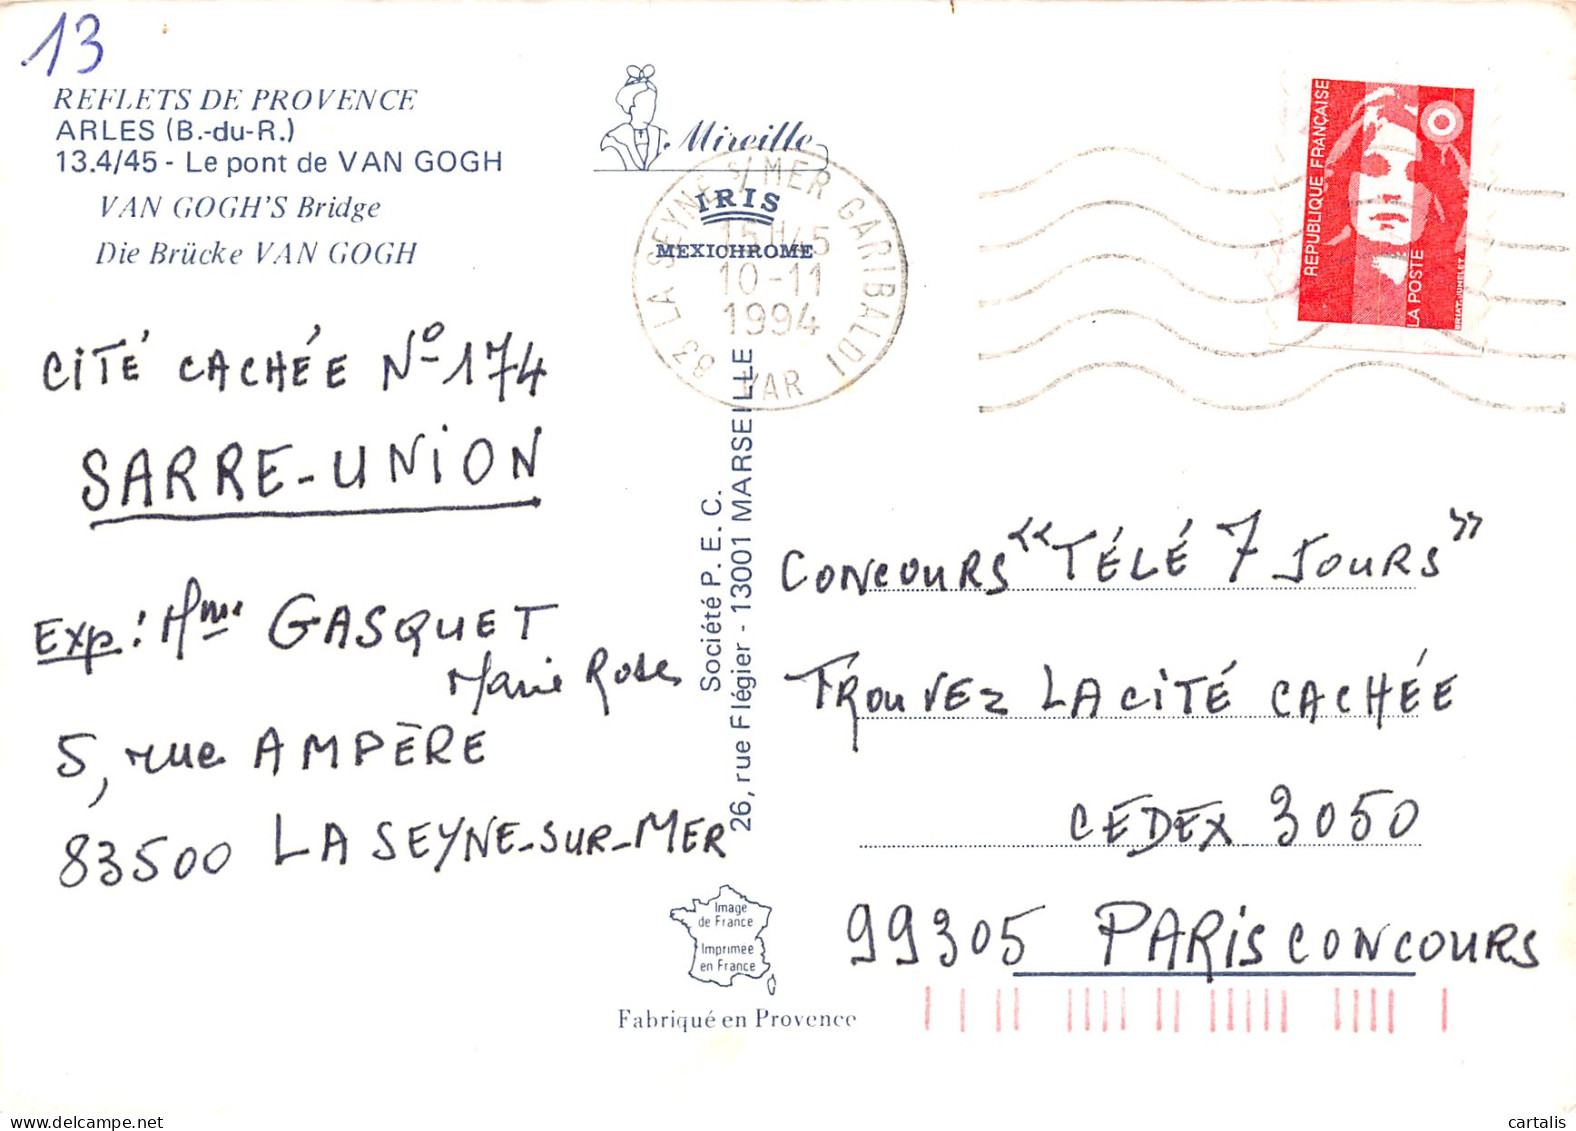 13
REFLETS DE PROVENCE
ARLES (B.-du-R.)
13.4/45 - Le pont de VAN GOGH
VAN GOGH'S Bridge
Die Brücke VAN GOGH
Mireille
IRIS
MEXICHROME
83 LA SEYNE S/MER GARIBALDI
15H45
10-11
1994
VAR
RÉPUBLIQUE FRANÇAISE
LA POSTE
BRIAT-JUMELET
CITÉ CACHÉE N° 174
SARRE-UNION
Exp: Mme GASQUET
Marie Rose
5, rue AMPÈRE
83500 LA SEYNE-SUR-MER
Société P. E. C.
26, rue Flégier - 13001 MARSEILLE
CONCOURS "TÉLÉ 7 JOURS"
TROUVEZ LA CITÉ CACHÉE
CEDEX 3050
99305 PARIS CONCOURS
Image
de France
Imprimée
en France
Fabriqué en Provence
cartalis